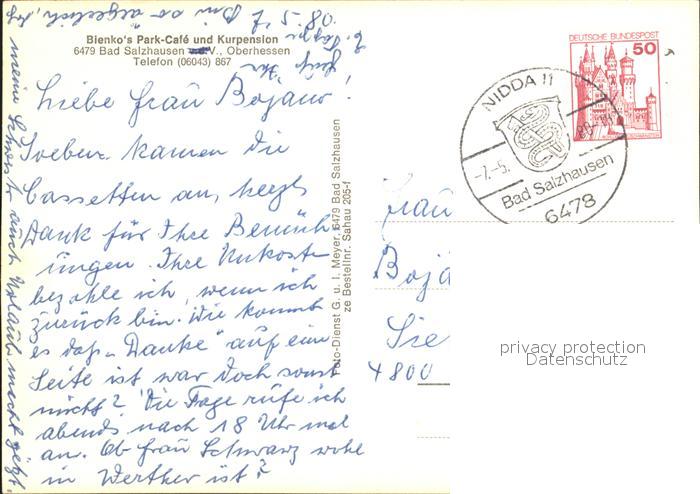 Bienko's Park-Café und Kurpension
6479 Bad Salzhausen o.d.V., Oberhessen
Telefon (06043) 867
7.5.80
Liebe Frau Bojanr!
Soeben kamen die
Cassetten an, herzl.
Dank für Ihre Bemüh
ungen. Ihre Unkost
bezahle ich, wenn ich
zurück bin. Wie kommt
es daß „Danke“ auf eine
Seite ist war doch sonst
nicht? Die Tage rufe ich
abends nach 18 Uhr mal
an. Ob Frau Schwarz wohl
in Werther ist?
meine Schwester auch Urlaub macht jetzt.
Foto-Dienst G. u. I. Meyer, 6479 Bad Salzhausen
ze Bestellnr. Sahau 205-f
DEUTSCHE BUNDESPOST
50
NIDDA 11
-7.-5.
80-
Bad Salzhausen
6478
Frau
Boja
Sie
4800
privacy protection
Datenschutz